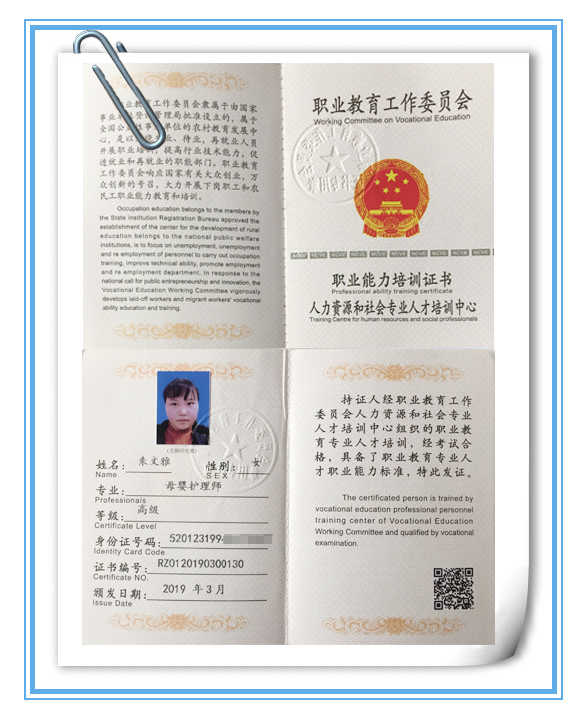 业教育工作委员会隶属于由国家
事业单位登记管理局批准设立的，属于
全国公益性事业单位的农村教育发展中
心，是以围绕失业、待业，再就业人员
开展职业培训，提高行业技术能力，促
进就业和再就业的职能部门。职业教育
工作委员会响应国家有关大众创业，万
众创新的号召，大力开展下岗职工和农
民工职业能力教育和培训。
Occupation education belongs to the members by
the State Institution Registration Bureau approved the
establishment of the center for the development of rural
education belongs to the national public welfare
institutions, is to focus on unemployment, unemployment
and re employment of personnel to carry out occupation
training, improve technical ability, promote employment
and re employment department. In response to the
national call for public entrepreneurship and innovation, the
Vocational Education Working Committee vigorously
develops laid-off workers and migrant workers' vocational
ability education and training.
职业教育工作委员会
Working Committee on Vocational Education
NCVE NCVE NCVE NCVE NCVE NCVE NCVE NCVE
职业能力培训证书
Professional ability training certificate
人力资源和社会专业人才培训中心
Training Centre for human resources and social professionals
(无钢印无效)
姓名: 朱文雅 性别: 女
Name SEX
专业: 母婴护理师
Professionals
等级: 高级
Certificate Level
身份证号码: 520123199
Identity Card Code
证书编号: RZ0120190300130
Certificate NO.
颁发日期: 2019 年 3 月
Issue Date
持证人经职业教育工作
委员会人力资源和社会专业
人才培训中心组织的职业教
育专业人才培训，经考试合
格，具备了职业教育专业人
才职业能力标准，特此发证。
The certificated person is trained by
vocational education professional personnel
training center of Vocational Education
Working Committee and qualified by vocational
examination.